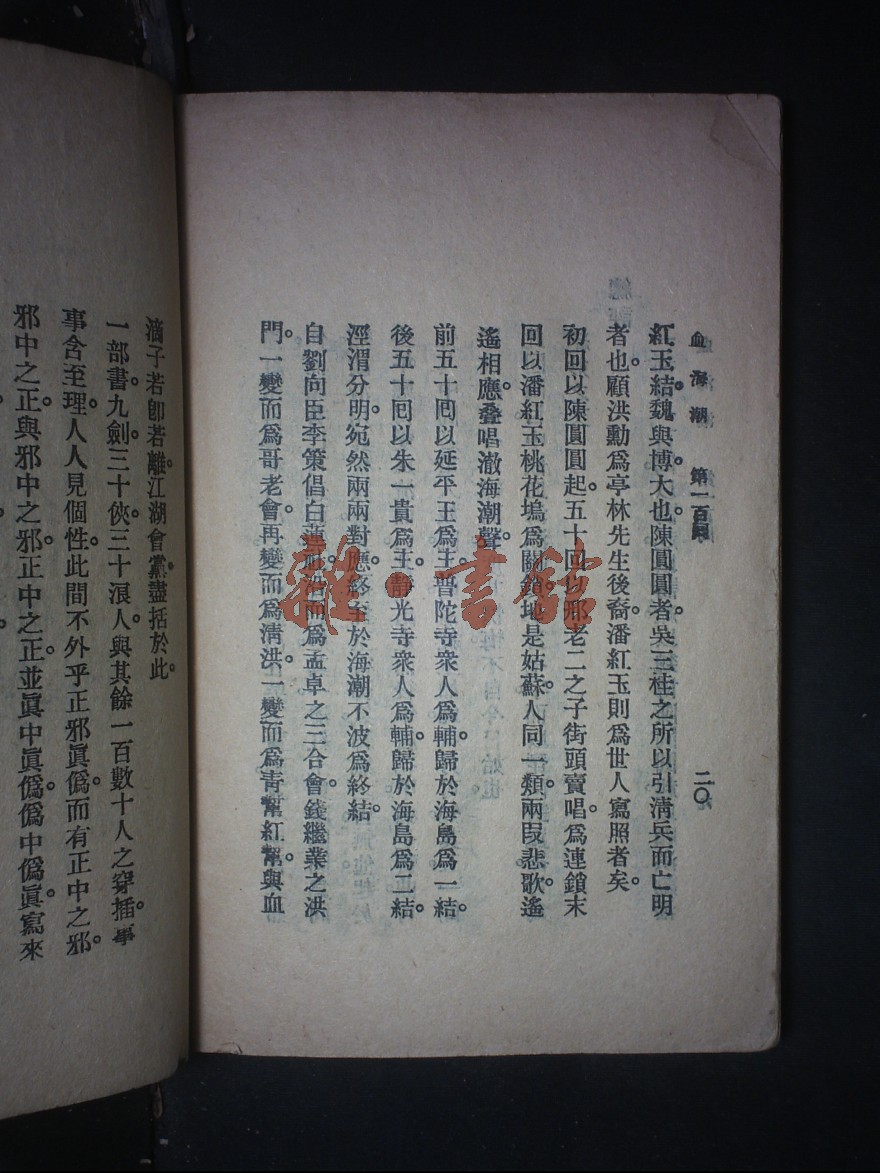 血海潮　第一百回
二〇
紅玉結魏與博大也陳圓圓者吳三桂之所以引淸兵而亡明
者也。顧洪勳爲亭林先生後裔潘紅玉則爲世人寫照者矣。
初回以陳圓圓起。五十回以邢老二之子街頭賣唱。爲連鎖末
回以潘紅玉桃花塢爲關鎖地是姑蘇。人同一類。兩段悲歌遙
遙相應叠唱澈海潮聲。
前五十囘以延平王爲主。普陀寺衆人爲輔。歸於海島爲一結。
後五十囘以朱一貴爲主。靜光寺衆人爲輔。歸於海島爲二結。
涇渭分明。宛然兩兩對應。終至於海潮不波爲終結。
自劉向臣李策倡白蓮社。沿而爲孟卓之三合會。錢繼業之洪
門。一變而爲哥老會。再變而爲淸洪。一變而爲青幫紅幫。與血
滴子若卽若離。江湖會黨。盡括於此。
一部書。九劍。三十俠。三十浪人。與其餘一百數十人之穿插。事
事含至理。人人見個性。此間不外乎正邪眞僞。而有正中之邪。
邪中之正。與邪中之邪。正中之正。並眞中眞。僞中僞。僞中眞。寫來
雜·書舘